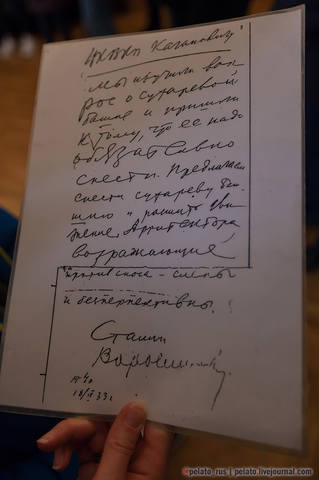 Кагановичу
Мы изучили воп
рос о Сухаревой
башне и пришли
к тому, что ее надо
обязательно
снести. Предлагаем
снести Сухареву баш
ню и расширить дви
жение. Архитектора,
возражающие
против сноса - слепы
и бесперспективны.
Сталин
Ворошилов
18/IX 33 г.
©pelato_rus | pelato.livejournal.com